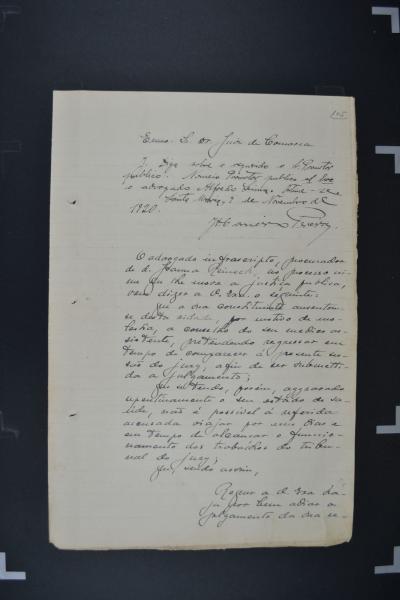 105
Exmo. S. Dr. Juiz da Comarca
J. Diga sobre o requerido o D. Promotor
publico. Nomeio Promotor publico
o advogado
Santa Maria, 2 de Novembro de
1920.
O advogado infrascripto, procurador
de d. Joanna no processo cri-
me que lhe move a justiça publica,
vem dizer a V. Exa. o seguinte:
que a sua constituinte ausentou-
se desta cidade, por motivo de mo-
lestia, a conselho do seu medico as-
sistente, pretendendo regressar em
tempo de comparecer á presente ses-
são do jury, afim de ser submetti-
da a julgamento;
que se tendo, porém, aggravado
repentinamente o seu estado de sa-
úde, não é possivel á referida
accusada viajar por uns dias e
em tempo de alcançar o funccio-
namento dos trabalhos do tribu-
nal do jury;
que, sendo assim,
Requer a V. Exa. ha-
ja por bem adiar o
julgamento da sua re-